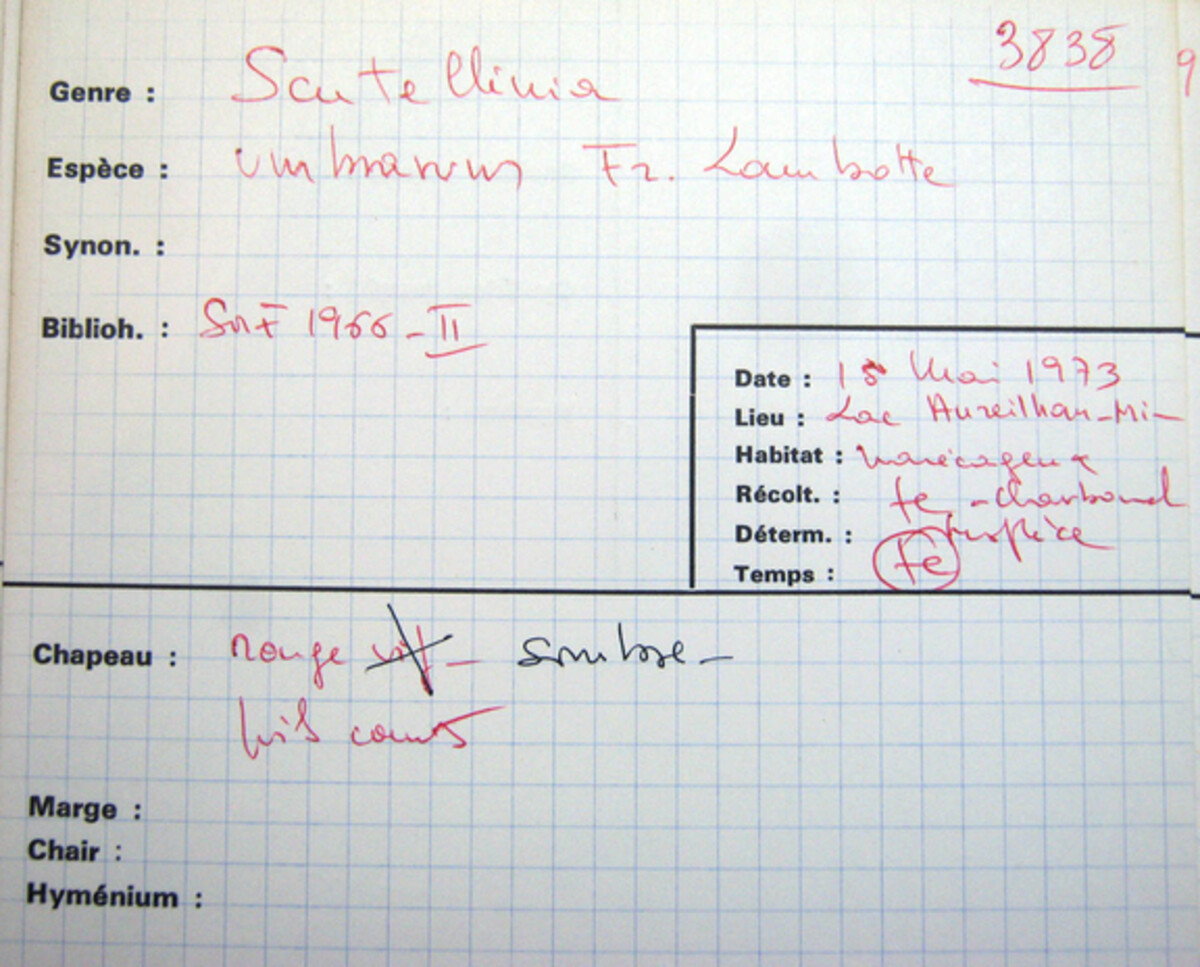 3838 9
Genre : Scutellinia
Espèce : umbrarum Fr. Lambotte
Synon. :
Biblioh. : SMF 1966 - II
Date : 15 Mai 1973
Lieu : Lac Aureilhan - Mi-
Habitat : marécageux
Récolt. : fe - Charbonnel
Déterm. :
Temps : fe
Chapeau : rouge vif - sombre -
poils courts
Marge :
Chair :
Hyménium :